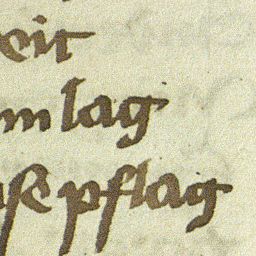 eit
m lag
ſe pflag